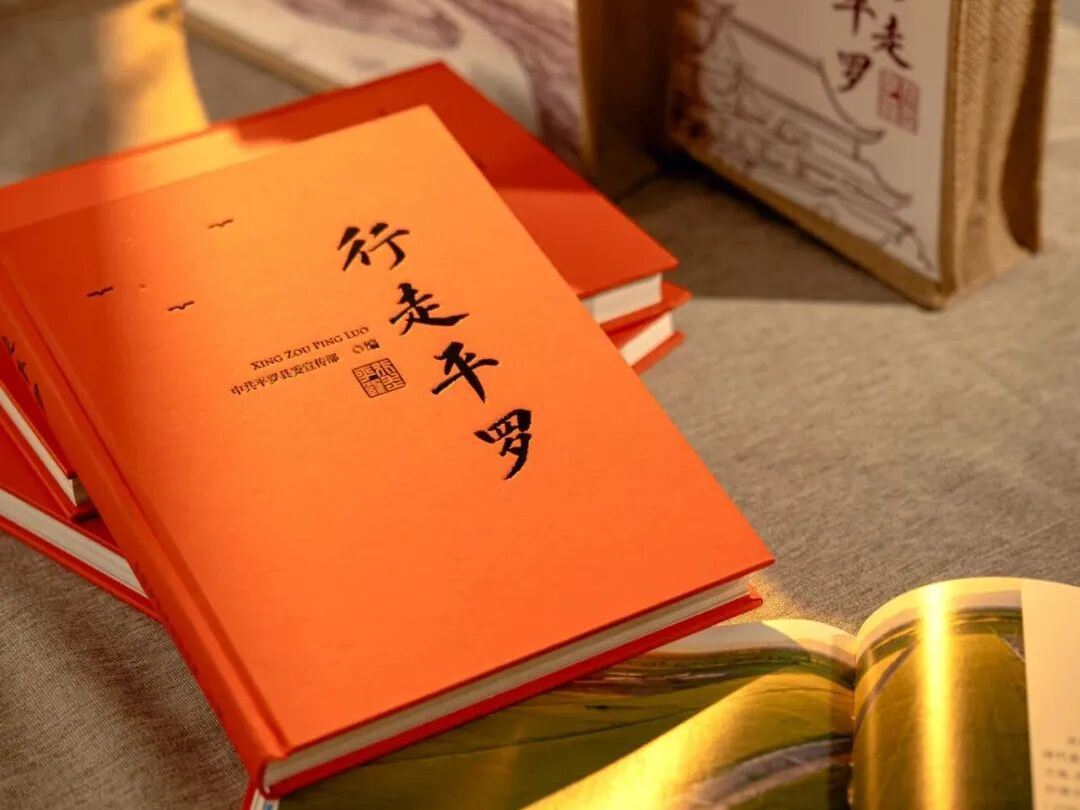 行走平罗
XING ZOU PING LUO
中共平罗县委宣传部 ◎编
走
平罗